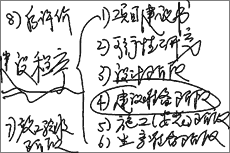 8)后评价
建设程序
7)竣工验收
阶段
1)项目建议书
2)可行性研究
3)设计阶段
4)建设准备阶段
5)施工安装阶段
6)生产准备阶段